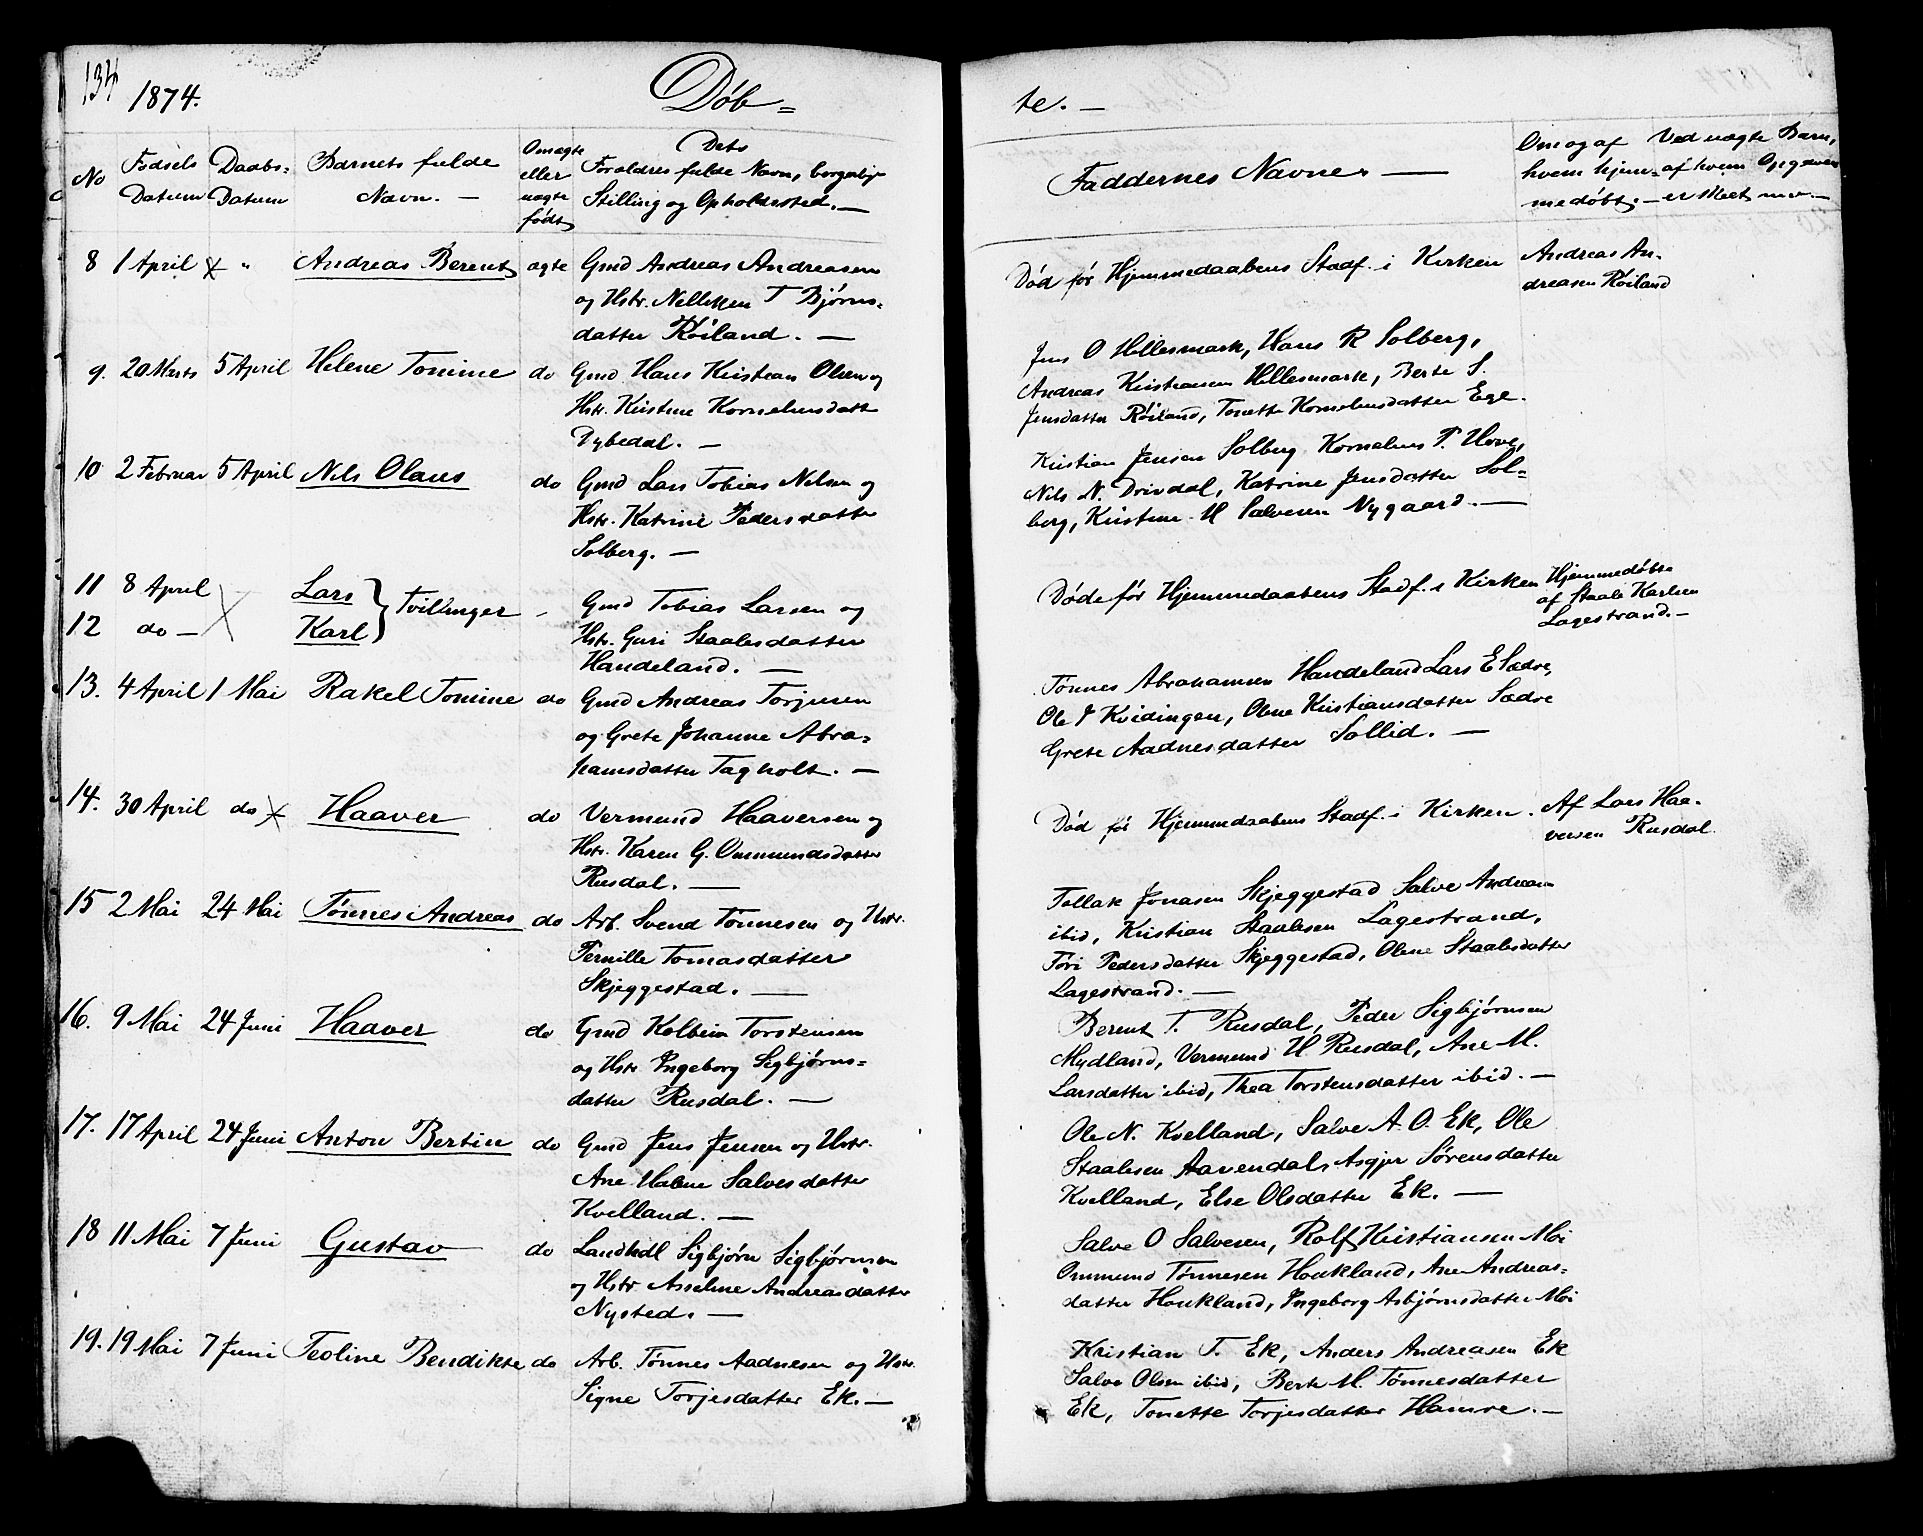 134
1874.
Døb=
No
Fødsels
Datum
Daabs-
Datum
Barnets fulde
Navn. —
Omægte
eller
uægte
født
Dets
Forældres fulde Navn, borgerlige
Stilling og Opholdssted. —
8 1 April × „ Andreas Berent ægte Gmd Andreas Andreasen
og Hstr. Nelliken T Bjørns=
datter Røiland. —
9. 20 Marts 5 April Helene Tomine do Gmd Hans Kristian Olsen og
Hstr. Kirstine Korneliusdatt
Dybedal. —
10 2 Februar 5 April Nils Olaus do Gmd Lars Tobias Nilsen og
Hstr. Katrine Pedersdatter
Solberg. —
11 8 April Lars
12 do — Karl } Tvillinger - Gmd Tobias Larsen og
Hstr. Guri Staalesdatter
Handeland. —
13. 4 April 1 Mai Rakel Tomine do Gmd Andreas Torjusen
og Grete Johanne Abra=
hamsdatter Tagholt. —
14. 30 April do × Haaver do Vermund Haaversen og
Hstr. Karen G. Ommundsdatter
Rusdal. —
15 2 Mai 24 Mai Tønnes Andreas do Arb. Svend Tønnesen og Hstr.
Pernille Tomasdatter
Skjeggestad. —
16. 9 Mai 24 Juni Haaver do Gmd Kolbein Torstensen
og Hstr Ingeborg Sigbjørns=
datter Rusdal. —
17. 17 April 24 Juni Anton Bertin do Gmd Jens Jensen og Hstr.
Ane Halene Salvesdatter
Kvelland. —
18 11 Mai 7 Juni Gustav do Landhdl Sigbjørn Sigbjørnsen
og Hstr Asseline Andreasdatter
Nysted. —
19. 19 Mai 7 Juni Teoline Bendikte do Arb. Tønnes Aadnesen og Hstr.
Signe Torjesdatter Ek. —
te. —
Faddernes Navne. —
Om og af
hvem hjem=
medøbt. —
Ved uægte Barn,
af hvem Opgaven
er Meet m.v. —
Død før Hjemmedaabens Stadf. i Kirken
Andreas An-
dreasen Røiland
Jens O Hillesmark, Hans R Solberg,
Andreas Kristiansen Hillesmark, Berte S.
Jensdatter Røiland, Tonette Korneliusdatter Ege.
Kristian Jensen Solberg Kornelius P. Hove,
Nils N. Drivdal, Katrine Jensdatter Sol=
berg, Kirstine H Salvesen Nygaard. —
Døde før Hjemmedaabens Stadf. i Kirken
Hjemmedøbte
af Staale Karlsen
Lagestrand. —
Tønnes Abrahamsen Handeland Lars E Sædre,
Ole J Kvidingen, Olene Kristiansdatter Sædre
Grete Aadnesdatter Sollid. —
Død før Hjemmedaabens Stadf. i Kirken.
Af Lars Haa-
versen Rusdal.
Tollak Jonasen Skjeggestad Salve Andreasen
ibid, Kristian Staalesen Lagestrand,
Tøri Pedersdatter Skjeggestad, Olene Staalesdatter
Lagestrand. —
Berent T. Rusdal, Peder Sigbjørnsen
Mydland, Vermund H Rusdal, Ane M.
Larsdatter ibid, Thea Torstensdatter ibid. —
Ole N. Kvelland, Salve A. O. Ek, Ole
Staalesen Aavendal, Asgjer Sørensdatter
Kvelland, Else Olsdatter Ek. —
Salve O Salvesen, Rolf Kristiansen Moi
Ommund Tønnesen Houkland, Ane Andreas=
datter Houkland, Ingeborg Asbjørnsdatter Moi
Kristian T. Ek, Anders Andreasen Ek
Salve Olsen ibid, Berte M. Tønnesdatter
Ek, Tonette Torjesdatter Hamre. —